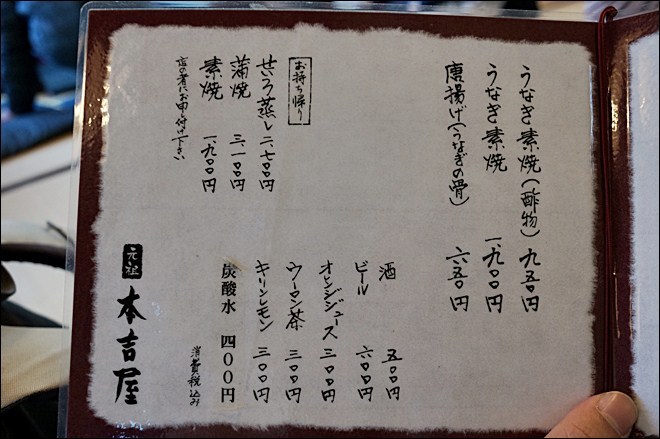 うなぎ素焼(酢物) 九五〇円
うなぎ素焼 一、九〇〇円
唐揚げ(うなぎの骨) 六五〇円
酒 五〇〇円
ビール 六〇〇円
オレンジジュース 三〇〇円
ウーロン茶 三〇〇円
キリンレモン 三〇〇円
炭酸水 四〇〇円
消費税込み
お持ち帰り
せいろ蒸し 二、七〇〇円
蒲焼 三、一〇〇円
素焼 一、九〇〇円
店の者にお申し付け下さい
元祖
本吉屋